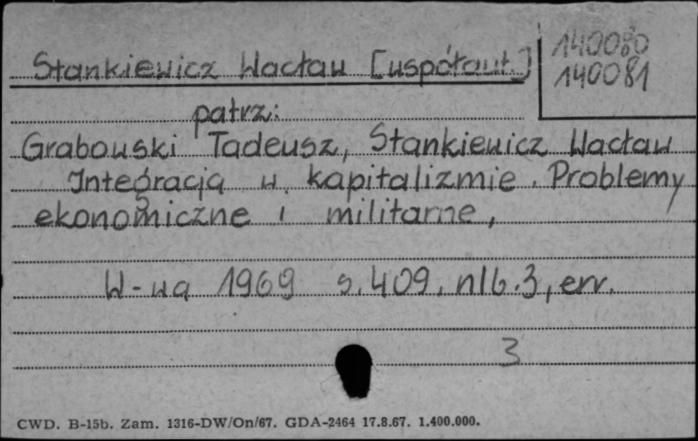 140080
140081
Stankiewicz Wacław [współaut.]
patrz:
Grabowski Tadeusz, Stankiewicz Wacław
Integracja w kapitalizmie. Problemy
ekonomiczne i militarne,
W-wa 1969 s. 409, nlb. 3, err.
3
CWD. B-15b. Zam. 1316-DW/On/67. GDA-2464 17.8.67. 1.400.000.